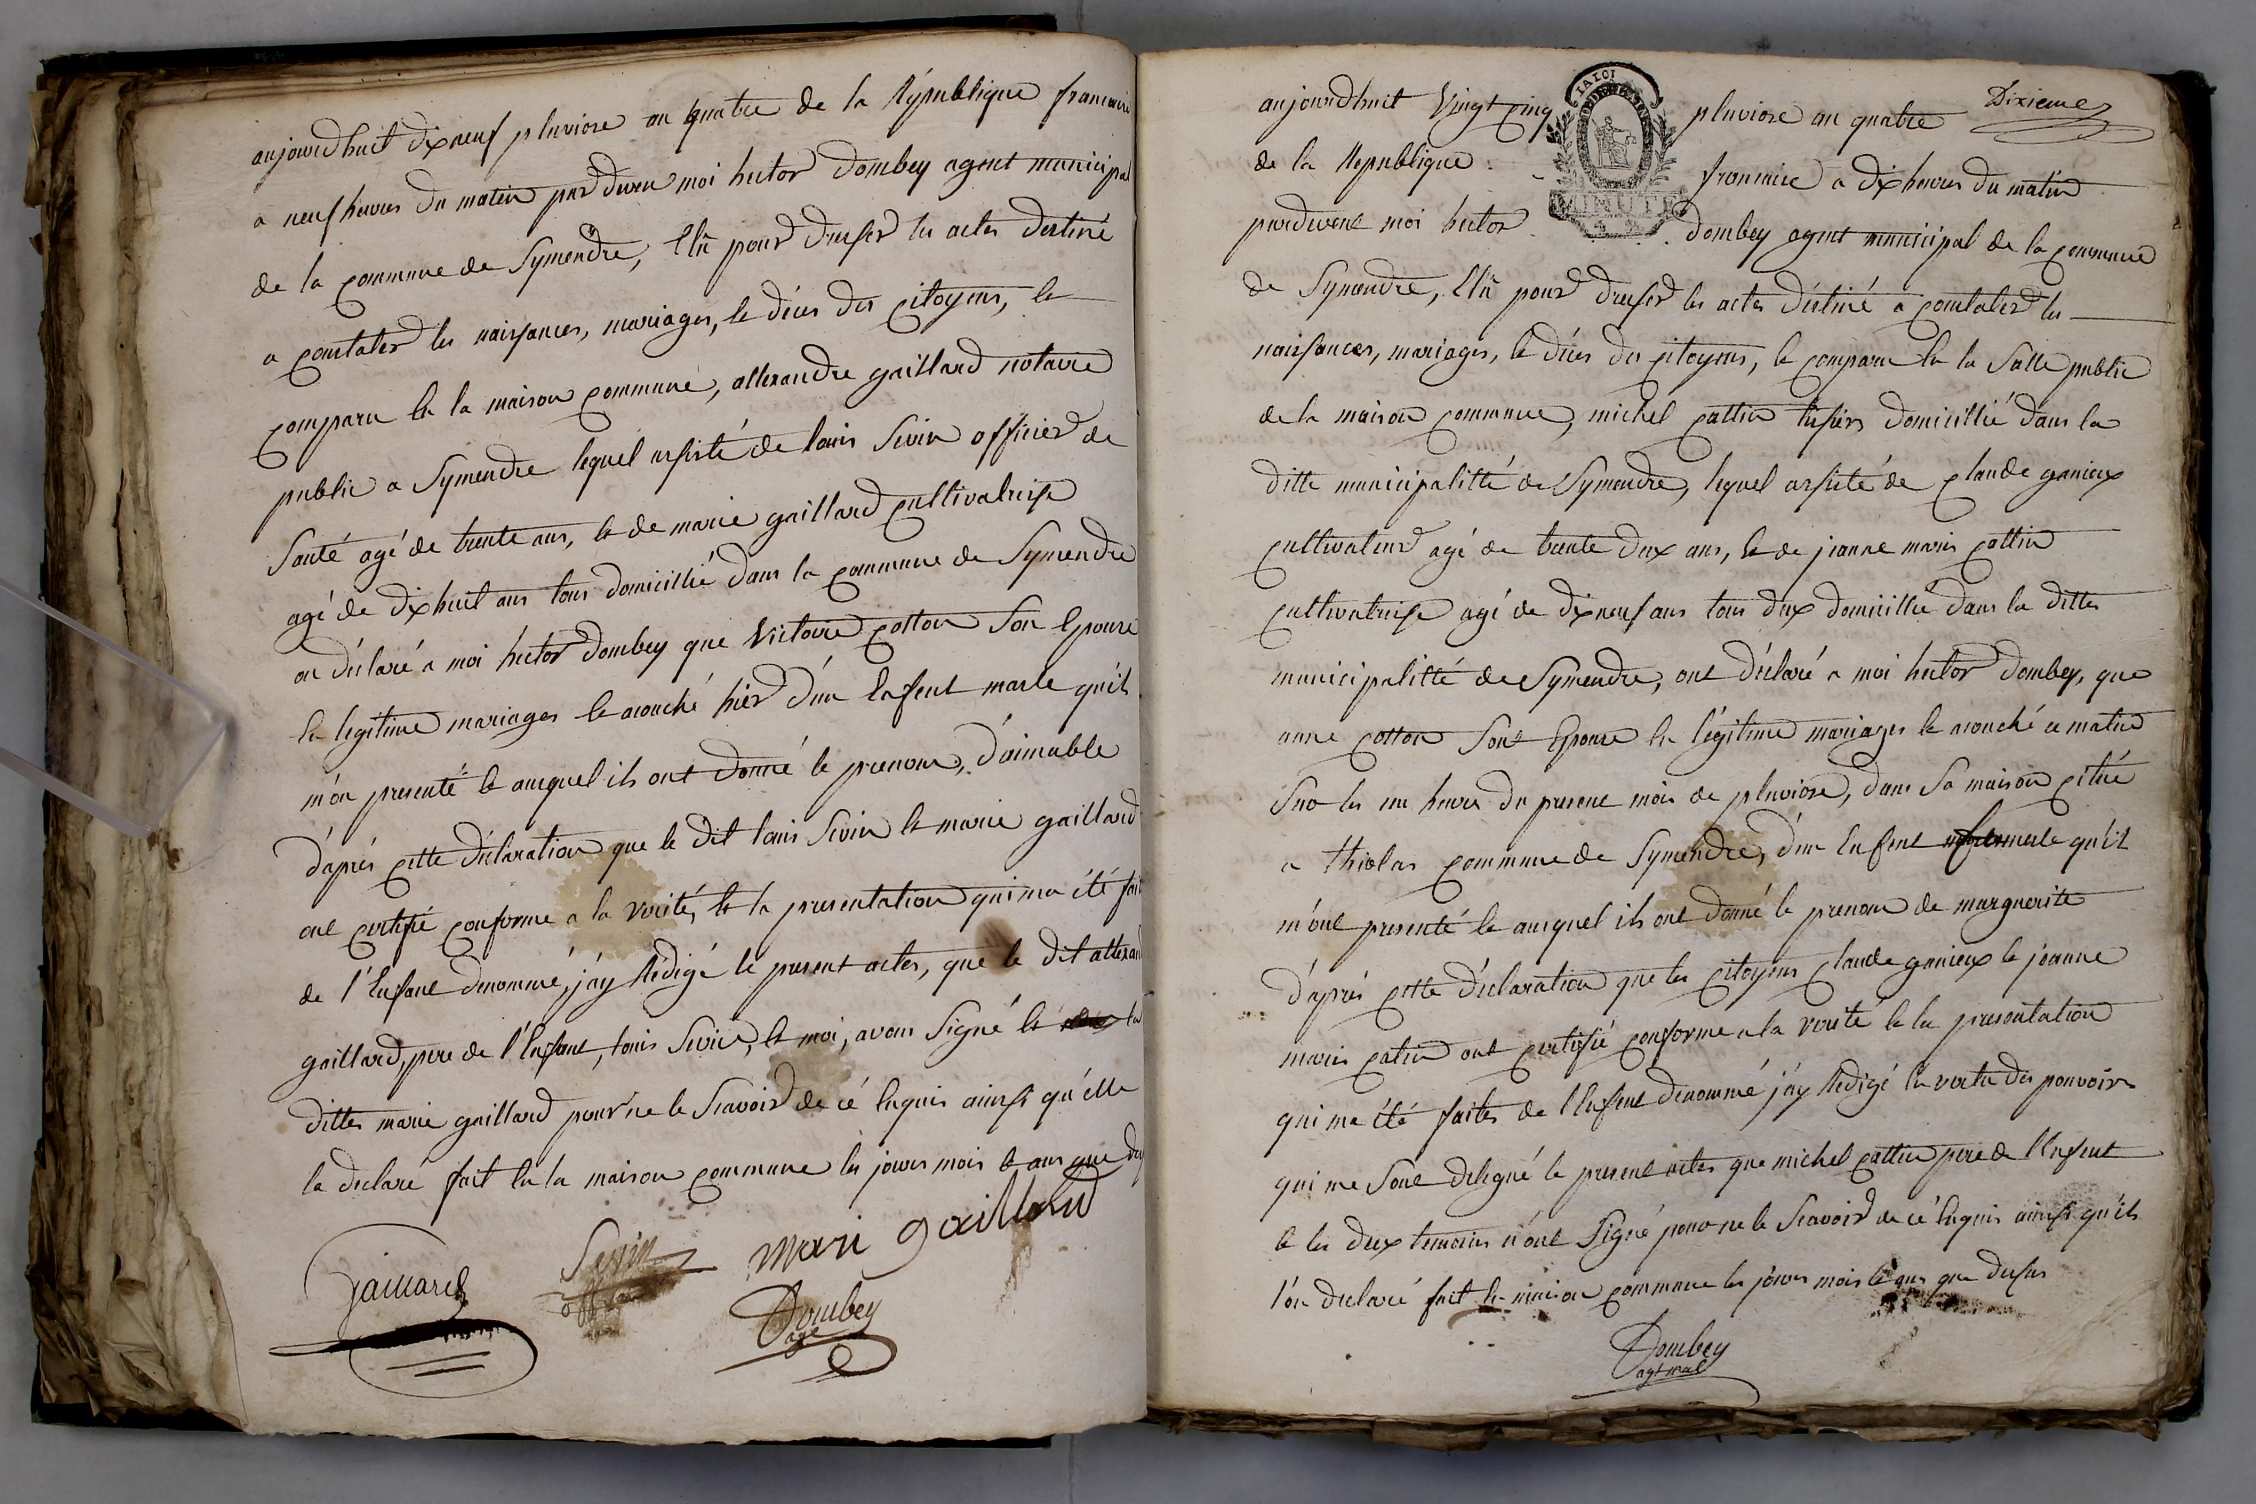 aujourdhuit dixneuf pluviose an quatre de la République francaise
a neuf heures du matin par deven moi hector Dombey agent municipal
de la commune de Symendre, Elu pour dresser les actes destiné
a constater les naissances, mariages, le décès des citoyens, le
comparu En la maison commune, allexandre gaillard notaire
public a Symendre lequel assisté de louis Sivin officier de
Santé agé de trente ans, et de marie gaillard cultivatrise
agé de dixhuit ans tous domicillié dans la commune de Symendre
on déclaré a moi hector Dombey que Victoire cotton Son Epouse
En legitime mariages Et acouché hier d'un Enfent masle qu'ils
m'on presenté Et auquel ils ont donné le prenom, d'aimable
d'après cette déclaration que le dit louis Sivin Et marie gaillard
ont certifié conforme a la vérité, Et la presentation qui ma été fait
de l'Enfant dénommé, j'ay Rédigé le present actes, que le dit allexand
gaillard, pere de l'Enfant, louis Sivin, Et moi, avons Signé Et la
dittes marie gaillard pour ne le Scavoir de cé Enquis ainsi qu'elle
la declaré fait En la maison commune les jours mois Et ans que dessus
Gaillard
Sevin
off
mari gaillard
Dombey
age
Dixieme
LA LOI
MINUTE
aujourdhuit Vingt cinq pluviose an quatre
de la Republique francaise a dix heures du matin
pardevent moi hector Dombey agent municipal de la commune
de Symendre, Elu pour dresser les actes déstiné a constater les
naissances, mariages, le décès des citoyens, le comparu En la Salle public
de la maison commune, michel cattin tissier domicillié dans la
ditte municipalitté de Symendre, lequel assisté de claude ganieux
cultivateur agé de trente deux ans, Et de jeanne marie cattin
cultivatrise agé de dixneuf ans tous deux domicillié dans la dittes
municipalitté de Symendre, ont déclaré a moi hector Dombey, que
anne cotton Sont Epouse En légitime mariages Et acouché ce matin
Sur les un heures du present mois de pluviose, dans Sa maison citué
a thiolas commune de Symendre, d'un Enfent qu'il
m'ont presenté Et auquel ils ont donné le prenom de marguerite
d'après cette déclaration que les citoyens claude ganieux Et jeanne
marie catin ont certifié conforme a la vérité Et la presentation
qui ma été faites de l'Enfent dénommé j'ay Rédigé En vertu des pouvoirs
qui me Sont delegné le present actes que michel cattin pere de l'Enfent
Et les deux temoins n'ont Signé pour ne le Scavoir de cé Enquis ainsi qu'ils
l'on declaré fait En maison commune les jours mois Et ans que dessus
Dombey
agt mal